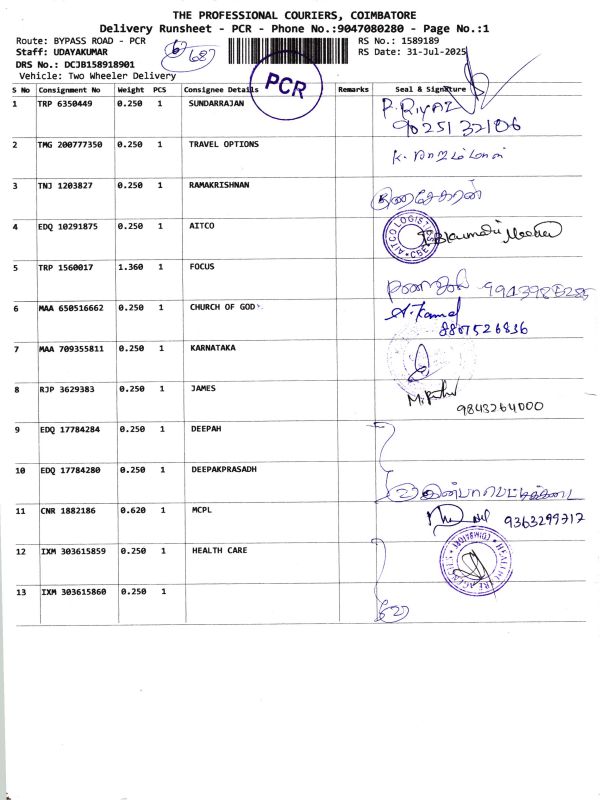 THE PROFESSIONAL COURIERS, COIMBATORE
Delivery Runsheet - PCR - Phone No.:9047080280 - Page No.:1
Route: BYPASS ROAD - PCR RS No.: 1589189
Staff: UDAYAKUMAR RS Date: 31-Jul-2025
DRS No.: DCJB158918901
Vehicle: Two Wheeler Delivery
PCR
S No Consignment No Weight PCS Consignee Details Remarks Seal & Signature
1 TRP 6350449 0.250 1 SUNDARRAJAN P. RIYAZ
9025132106
2 TMG 200777350 0.250 1 TRAVEL OPTIONS
3 TNJ 1203827 0.250 1 RAMAKRISHNAN
4 EDQ 10291875 0.250 1 AITCO AITCO LOGISTICS
5 TRP 1560017 1.360 1 FOCUS
6 MAA 650516662 0.250 1 CHURCH OF GOD A. Kamal
8807526836
7 MAA 709355811 0.250 1 KARNATAKA
8 RJP 3629383 0.250 1 JAMES
9843264000
9 EDQ 17784284 0.250 1 DEEPAH
10 EDQ 17784280 0.250 1 DEEPAKPRASADH
11 CNR 1882186 0.620 1 MCPL 9363299717
12 IXM 303615859 0.250 1 HEALTH CARE
13 IXM 303615860 0.250 1